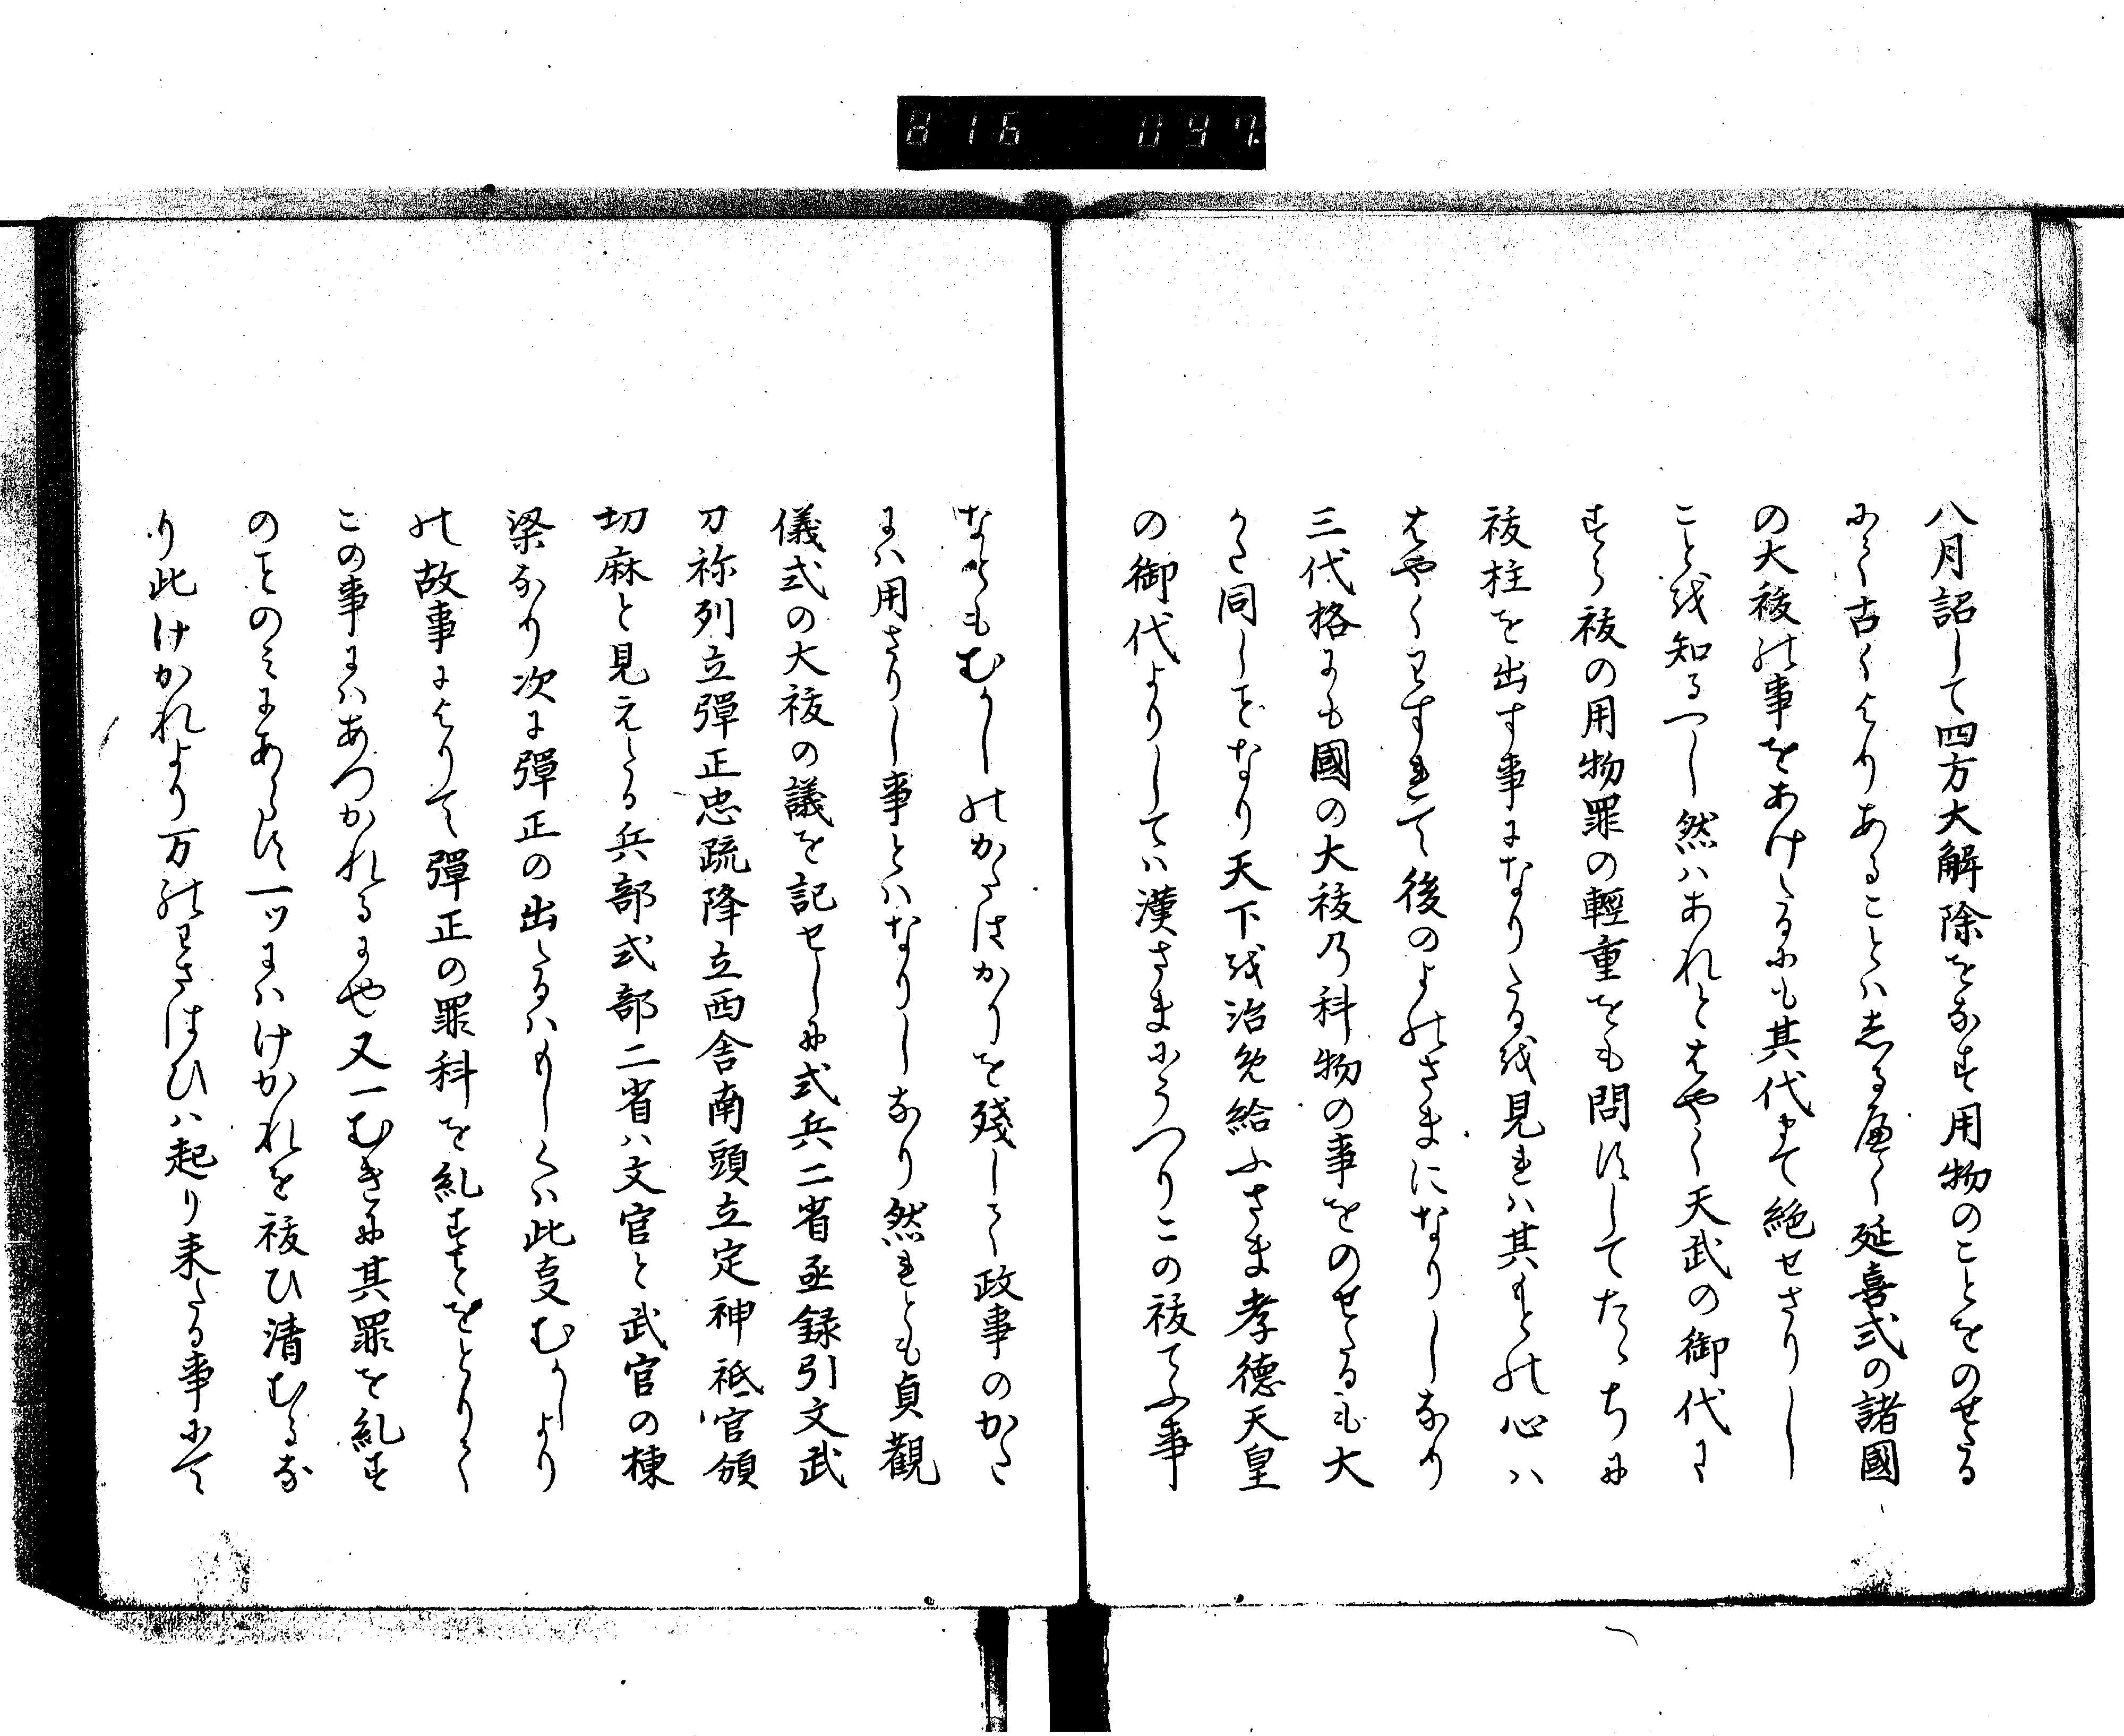 816 097
八月詔して四方大解除をなす用物のことをのせたる
にて古くよりあることハしるへく延喜式の諸國
の大祓の事をあけたるにも其代まて絶せさりし
こと越知るへし然ハあれとはやく天武の御代に
すら祓の用物罪の輕重をも問すしてたゝちに
祓柱を出す事になりたる越見れハ其もとの心ハ
はやくわすれて後のよのさまになりしなり
三代格にも國の大祓乃科物の事をのせたるも大
かた同しをなり天下越治免給ふさま孝德天皇
の御代よりしてハ漢さまにうつりこの祓てふ事
なともむかしのかたはかりを殘して政事のかた
にハ用さりし事とハなりしなり然れとも貞觀
儀式の大祓の議を記せしに式兵二省丞録引文武
刀祢列立彈正忠疏降立西舍南頭立定神祇官頒
切麻と見えたる兵部式部二省ハ文官と武官の棟
梁なり次に彈正の出たるハもしくハ此叓むかしより
の故事によりて彈正の罪科を糺すをとりて
この事にハあつかれるにや又一むきに其罪を糺す
のことのみにあらす一ツにハけかれを祓ひ清むるな
り此けかれより万のわさはひハ起り来たる事にて